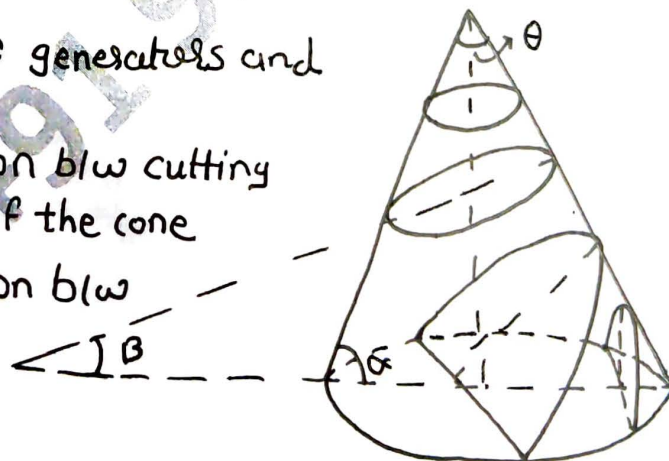 generators and
θ
on b/w cutting
f the cone
on b/w
β
α